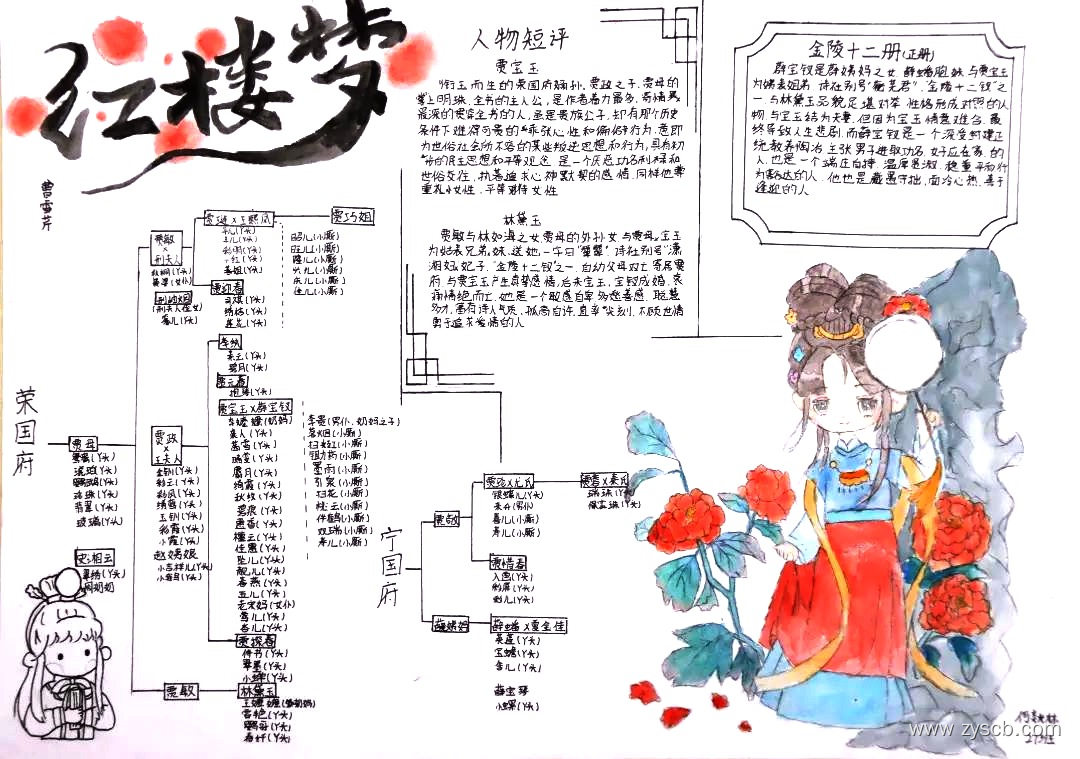 红楼梦
曹雪芹
人物短评
贾宝玉
衔玉而生的荣国府嫡孙,贾政之子,贾母的
掌上明珠,全书的主人公,是作者着力最多、寄情最
条件下难得可贵的"乖张"心性和偏僻行为,意即
为世俗社会所不容的某些叛逆思想和行为,具有初
世俗交往,执着追求心神默契的感情,同样他尊
重礼少女性,平等对待女性
林黛玉
贾敏与林如海之女,贾母的外孙女,与贾母宝玉
为姑表兄弟妹,送她一字曰"颦颦",诗社别号"潇
湘妃子","金陵十二钗"之一,自幼父母双亡,寄居贾
府,与贾宝玉产生真挚感情,后来宝玉、宝钗成婚,
病情绝而亡,她是一个敏感自卑,多愁善感,聪慧
多才,富有诗人气质,孤高自许,直率尖刻,不顾世情
勇于追求爱情的人
金陵十二册(正册)
薛宝钗是薛姨妈之女,薛蟠胞妹,与贾宝玉
为姨表姐弟,诗社别号"蘅芜君","金陵十二钗"之
一,与林黛玉品貌足堪对举,性格形成对照的人
物,与宝玉结为夫妻,但因为宝玉情意难合,最
终导致人生悲剧,而薛宝钗是一个深受封建正
统教养陶冶,主张男子进取功名,女子应在家的
人,也是一个端庄自持,温厚贤淑,稳重平和行
为豁达的人,他也是藏愚守拙,面冷心热,善于
逢迎的人
荣国府
贾母
鸳鸯(丫头)
琥珀(丫头)
鹦鹉(丫头)
珍珠(丫头)
翡翠(丫头)
玻璃(丫头)
史湘云
翠缕(丫头)
周奶奶
贾赦
×
邢夫人
邢岫烟
(邢夫人侄女)
篆儿(丫头)
贾琏×王熙凤
平儿(丫头)
小红(丫头)
善姐(丫头)
昭儿(小厮)
旺儿(小厮)
隆儿(小厮)
住儿(小厮)
贾巧姐
贾迎春
司棋(丫头)
绣桔(丫头)
莲花(丫头)
贾政
×
王夫人
金钏(丫头)
彩云(丫头)
彩凤(丫头)
绣鸾(丫头)
玉钏(丫头)
彩霞(丫头)
小霞(丫头)
赵姨娘
小吉祥儿(丫头)
小鹊(丫头)
李纨
素云(丫头)
碧月(丫头)
贾元春
抱琴(丫头)
贾宝玉×薛宝钗
李嬷嬷(奶妈)
袭人(丫头)
茜雪(丫头)
晴雯(丫头)
麝月(丫头)
绮霞(丫头)
秋纹(丫头)
碧痕(丫头)
蕙香(丫头)
檀云(丫头)
佳蕙(丫头)
坠儿(丫头)
靓儿(丫头)
春燕(丫头)
五儿(丫头)
老宋妈(女仆)
莺儿(丫头)
杏儿(丫头)
李贵(男仆,奶妈之子)
茗烟(小厮)
扫红(小厮)
锄药(小厮)
墨雨(小厮)
引泉(小厮)
扫花(小厮)
挑云(小厮)
伴鹤(小厮)
双瑞(小厮)
寿儿(小厮)
贾探春
侍书(丫头)
翠墨(丫头)
小蝉(丫头)
贾敏
林黛玉
王嬷嬷(奶妈)
雪雁(丫头)
鹦哥(丫头)
春纤(丫头)
宁国府
贾敬
贾珍×尤氏
银蝶儿(丫头)
喜儿(小厮)
寿儿(小厮)
贾蓉×秦氏
瑞珠(丫头)
宝珠(丫头)
贾惜春
入画(丫头)
彩屏(丫头)
彩儿(丫头)
薛姨妈
薛蟠×夏金桂
宝蟾(丫头)
薛宝琴
小螺(丫头)
www.zyscb.com